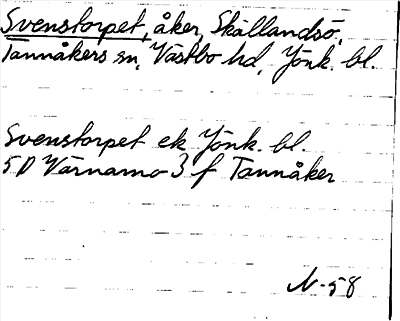 Svenstorpet, åker, Skällandsö,
Tannåkers sn, Västbo hd, Jönk. bl.
Svenstorpet ek Jönk. bl.
5 D Värnamo 3 f Tannåker
N-58